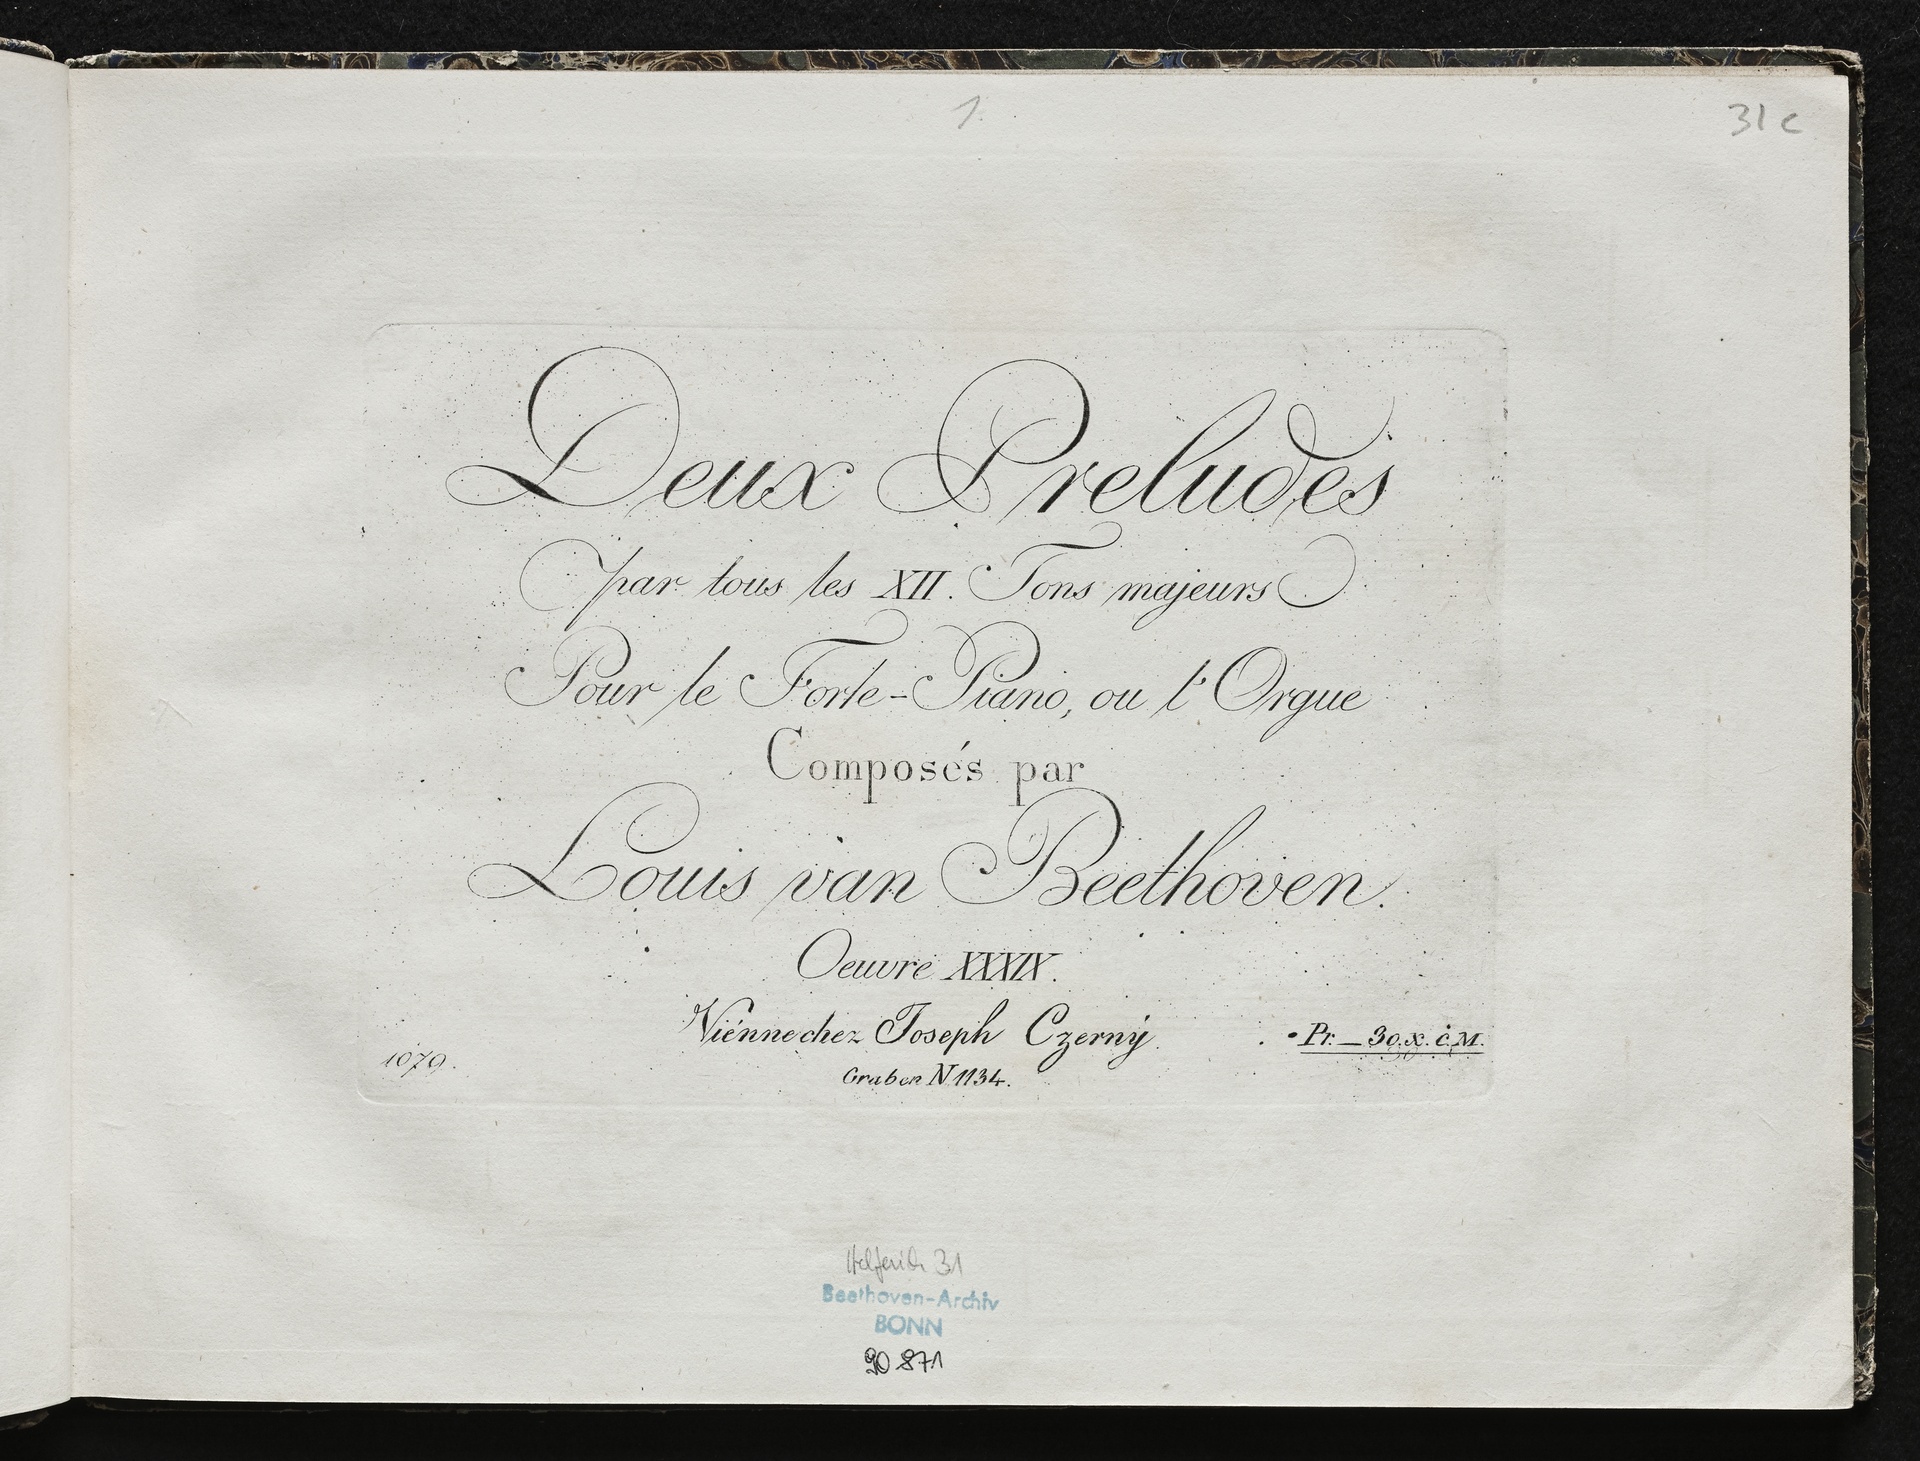 1.
31 c
Deux Preludes
par tous les XII. Tons majeurs
Pour le Forte-Piano, ou l'Orgue
Composés par
Louis van Beethoven.
Oeuvre XXXIX.
Viénne chez Joseph Czerny
Pr. _ 30. x. c.M.
1079.
Graben N 1134.
Helferich 31
Beethoven-Archiv
BONN
90 871